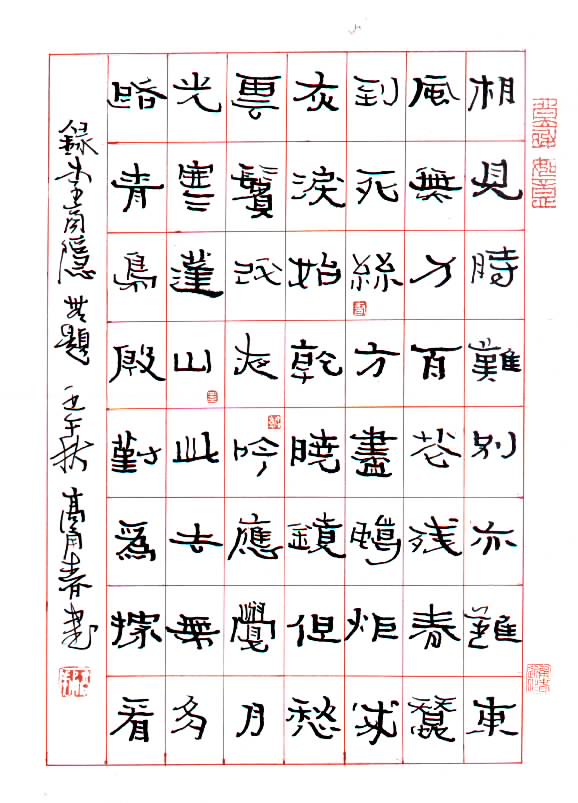 相見時難別亦難東
風無力百花残春蠶
到死絲方盡蠟炬成
灰淚始乾曉鏡但愁
雲鬢改夜吟應覺月
光寒蓬山此去無多
路青鳥殷勤爲探看
録李商隱無題 壬午秋 春書